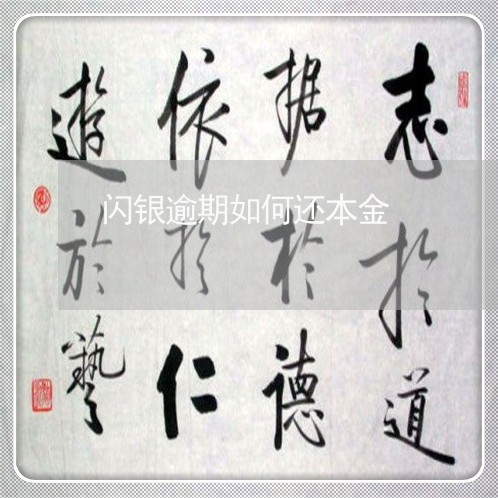 志扵道
据扵德
依扵仁
遊於藝
闪银逾期如何还本金